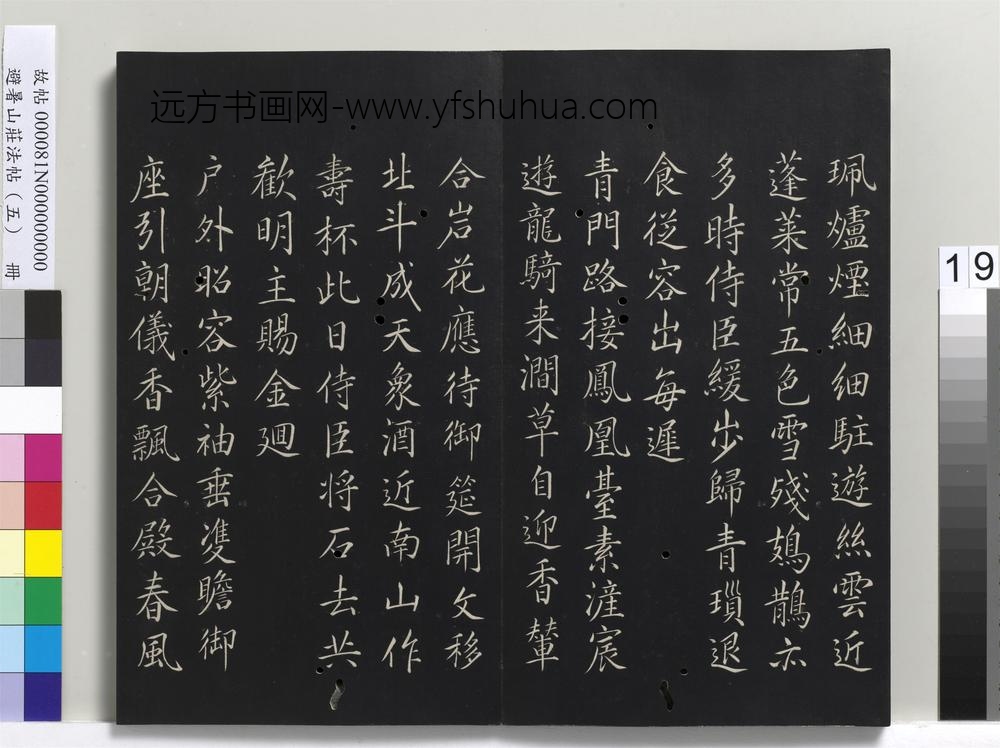 远方书画网-www.yfshuhua.com
珮爐煙細細駐遊絲雲近
蓬萊常五色雪殘鳷鵲亦
多時侍臣緩步歸青瑣退
食從容出每遲
青門路接鳳凰臺素滻宸
遊龍騎来澗草自迎香輦
合岩花應待御筵開文移
北斗成天象酒近南山作
壽杯此日侍臣将石去共
歡明主賜金廻
户外昭容紫袖垂雙瞻御
座引朝儀香飄合殿春風
故帖 000081N000000000
避暑山莊法帖(五) 冊
19